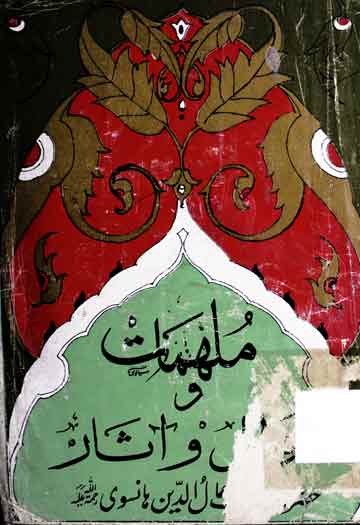 ملهمات
و
و اثار
حضر الدین ہانسوی رحمۃ اللہ علیہ